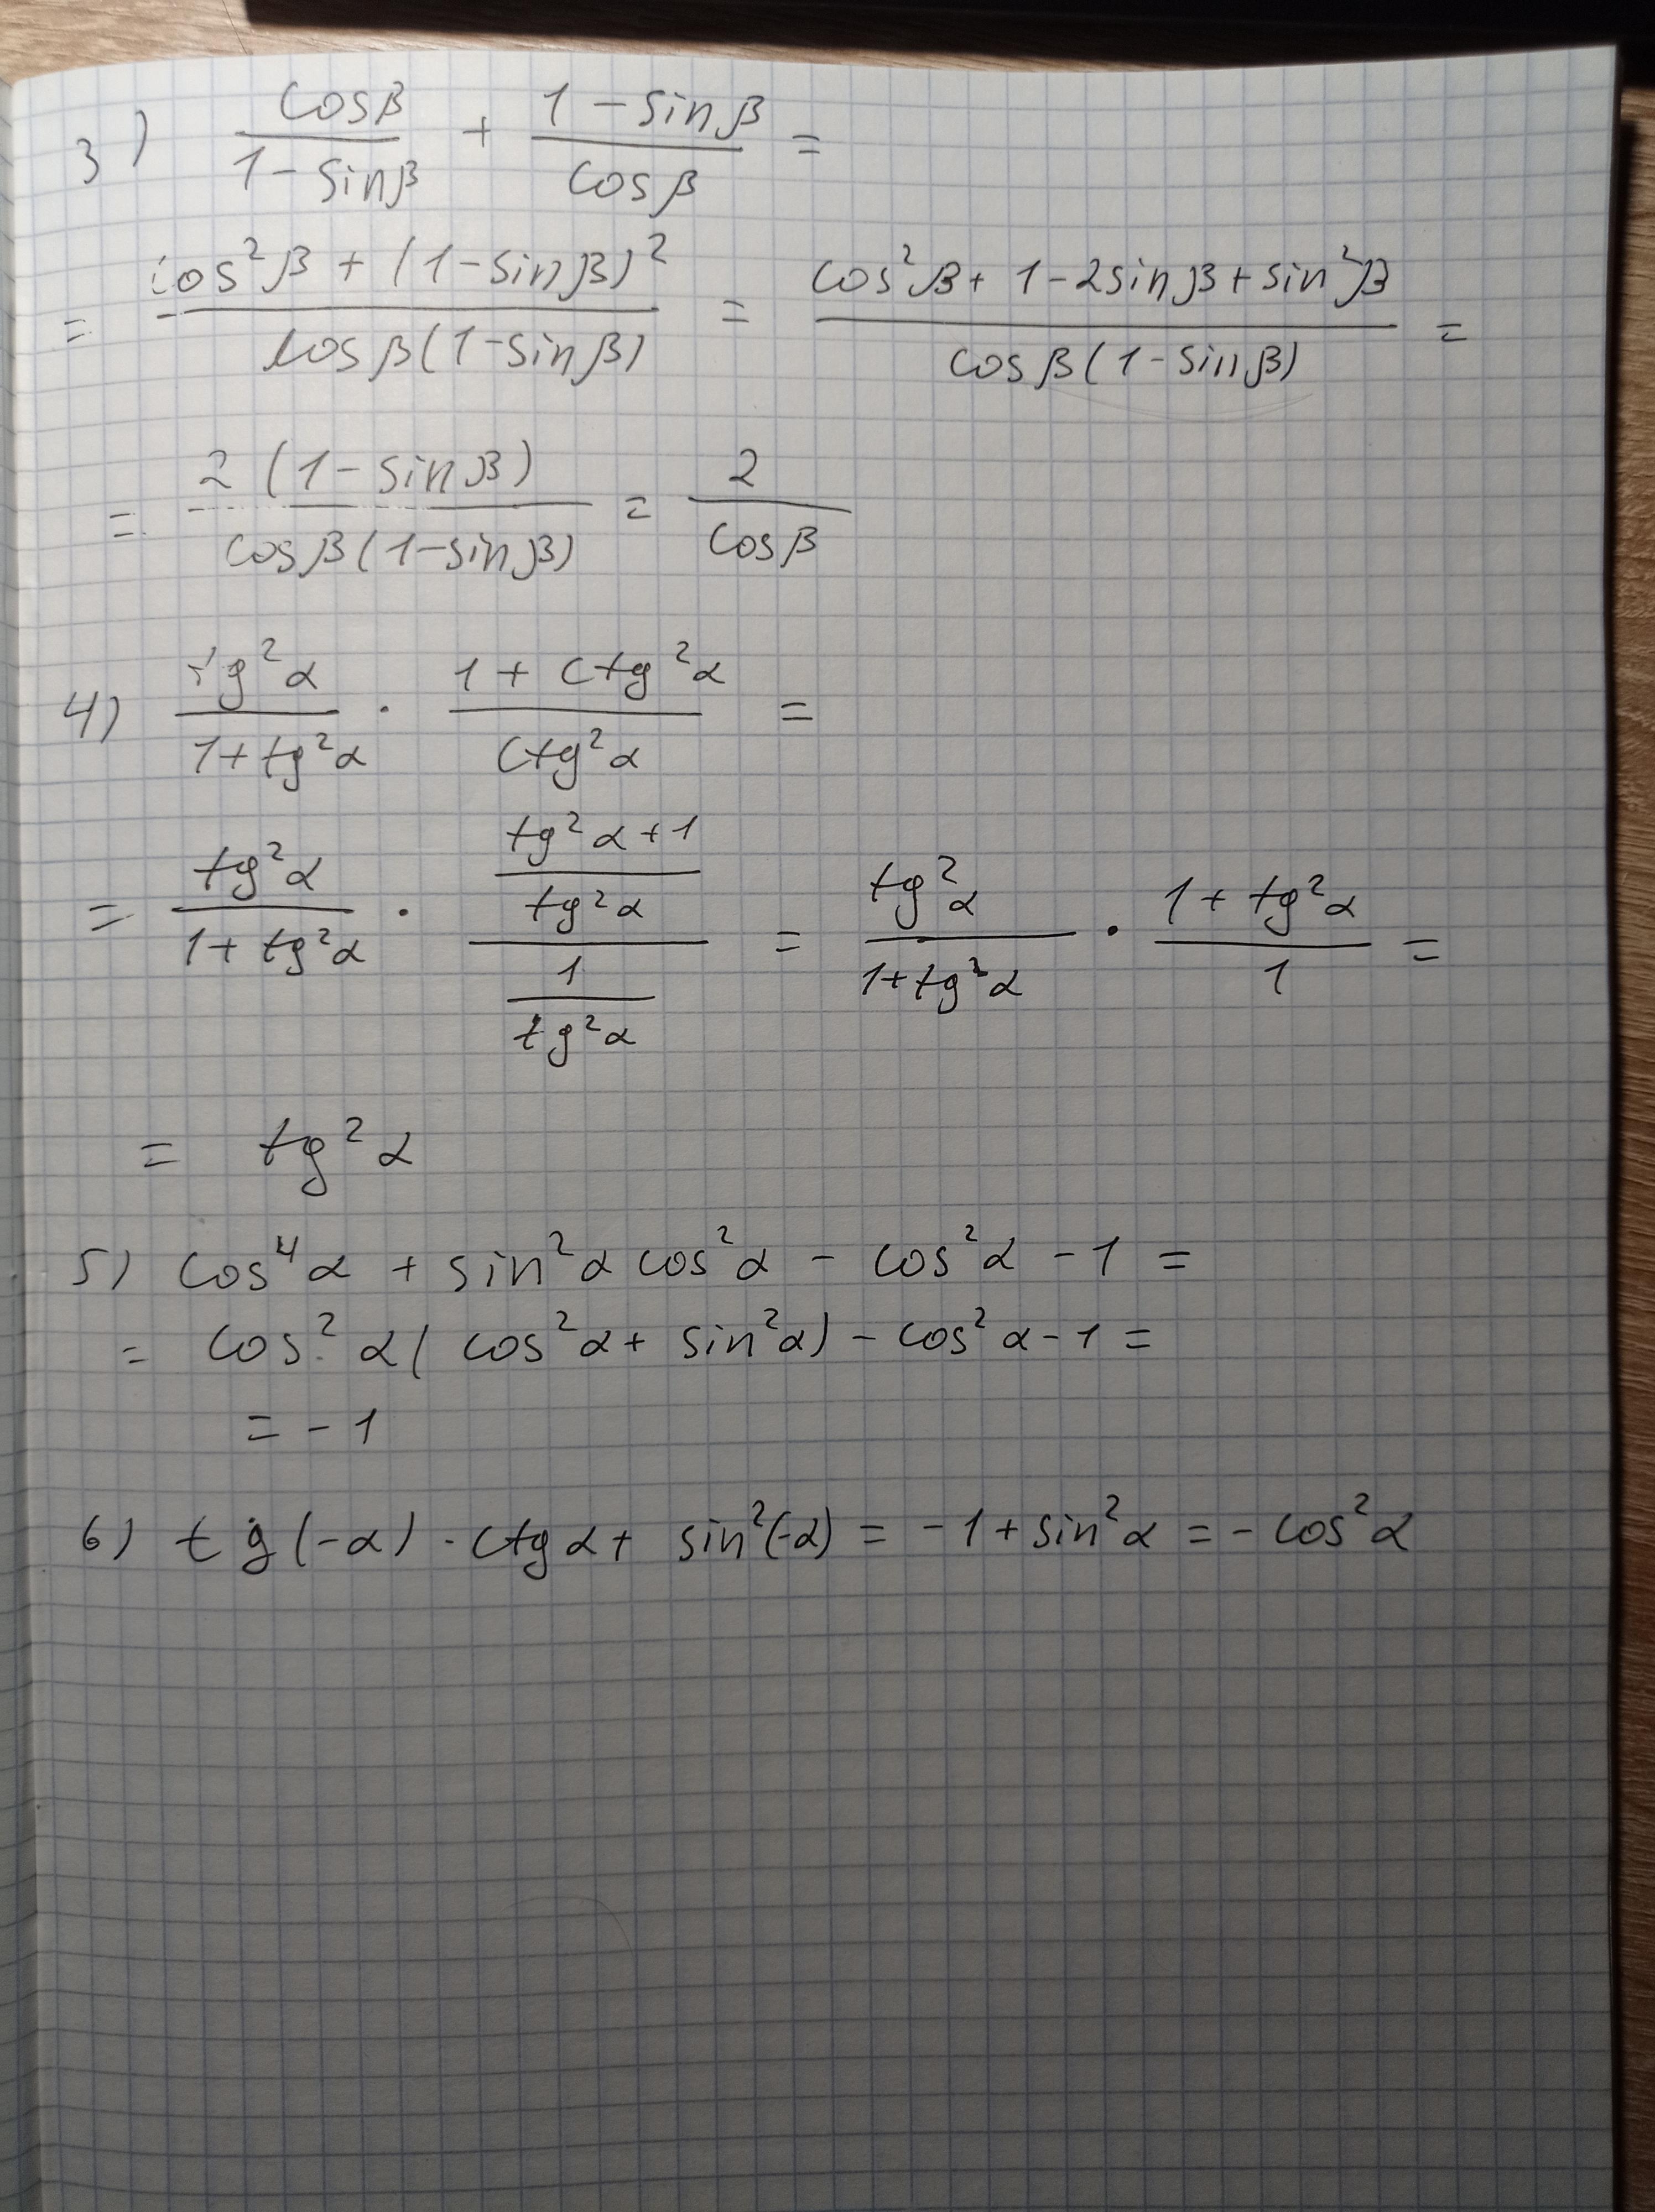 3) cosβ/(1-sinβ) + (1-sinβ)/cosβ =
= (cos²β + (1-sinβ)²)/(cosβ(1-sinβ)) = (cos²β + 1-2sinβ + sin²β)/(cosβ(1-sinβ)) =
= 2(1-sinβ)/(cosβ(1-sinβ)) = 2/cosβ
4) tg²α/(1+tg²α) · (1+ctg²α)/ctg²α =
= tg²α/(1+tg²α) · ((tg²α+1)/tg²α)/(1/tg²α) = tg²α/(1+tg²α) · (1+tg²α)/1 =
= tg²α
5) cos⁴α + sin²α cos²α - cos²α - 1 =
= cos²α(cos²α + sin²α) - cos²α - 1 =
= -1
6) tg(-α) · ctgα + sin²(-α) = -1 + sin²α = -cos²α